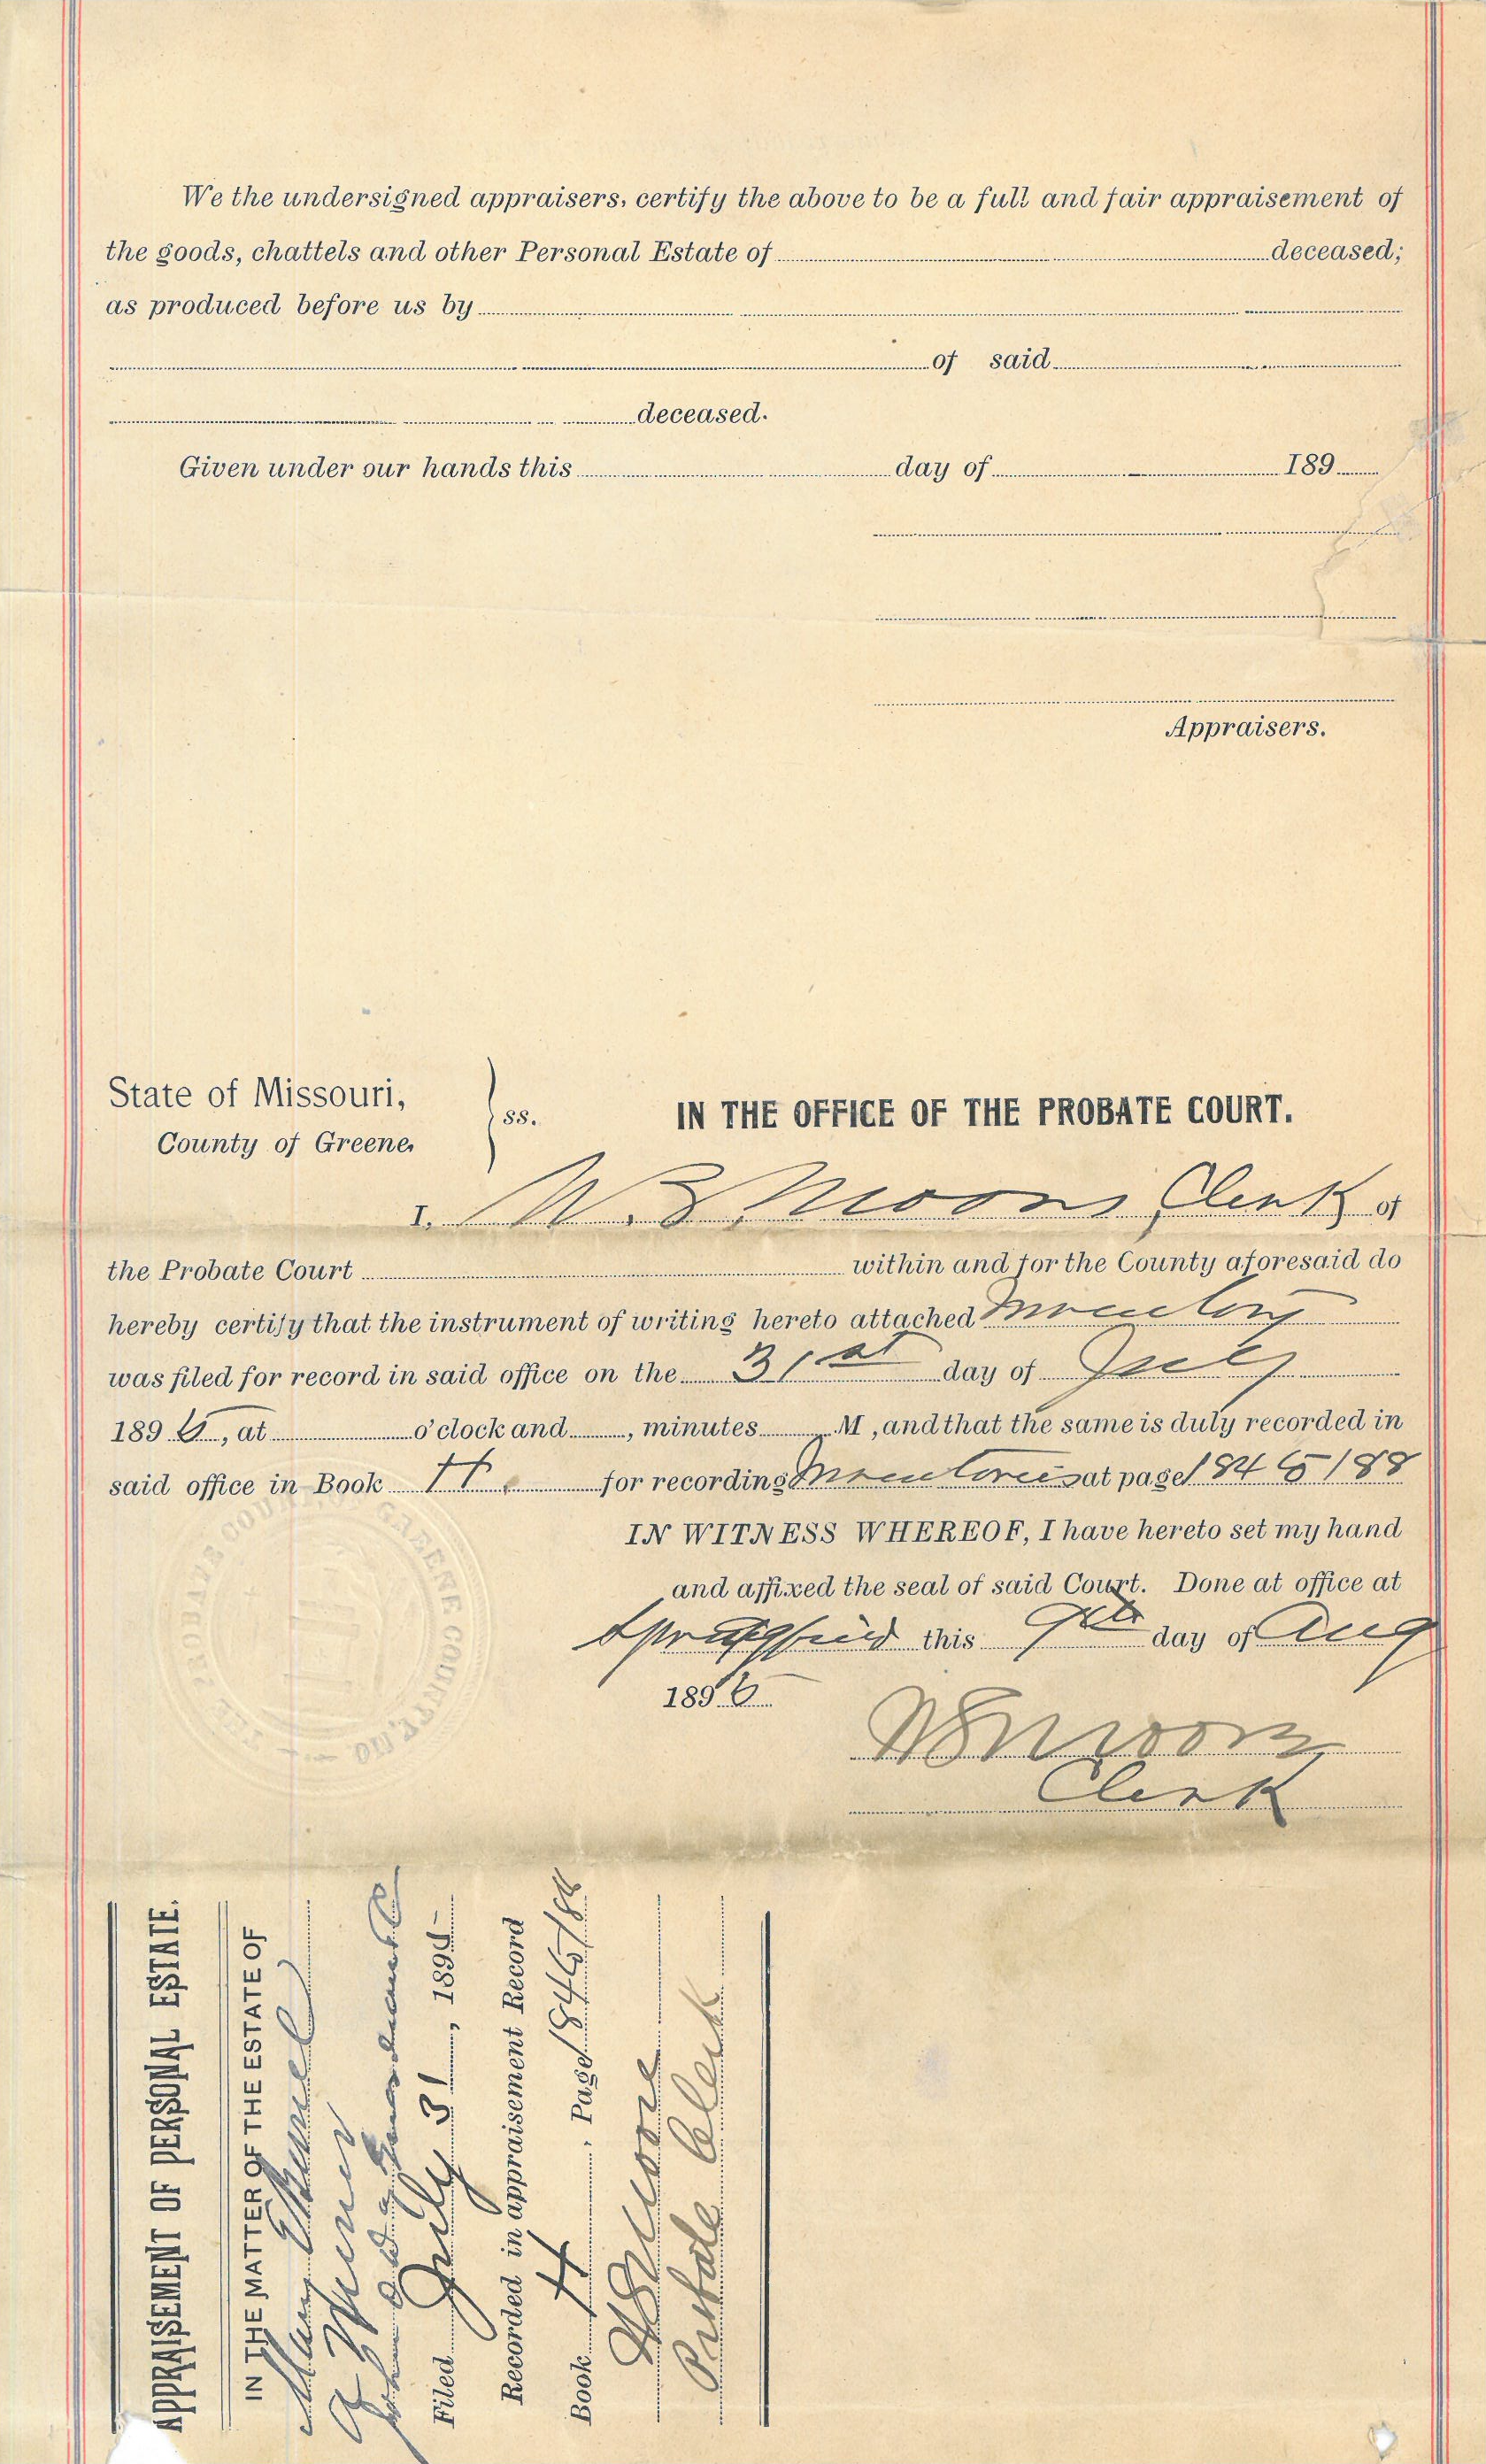 We the undersigned appraisers, certify the above to be a full and fair appraisement of
the goods, chattels and other Personal Estate of deceased;
as produced before us by
of said
deceased.
Given under our hands this day of 189
Appraisers.
State of Missouri,
County of Greene,
ss.
IN THE OFFICE OF THE PROBATE COURT.
I, W. E. Moore Clerk of
the Probate Court within and for the County aforesaid do
hereby certify that the instrument of writing hereto attached Inventory
was filed for record in said office on the 31st day of July
1896, at o'clock and , minutes M , and that the same is duly recorded in
said office in Book H. for recording Inventories at page 184 188
IN WITNESS WHEREOF, I have hereto set my hand
and affixed the seal of said Court. Done at office at
Springfield this 9th day of Aug
1896
Moore
Clerk
THE PROBATE COURT GREENE COUNTY, MO.
APPRAISEMENT OF PERSONAL ESTATE.
IN THE MATTER OF THE ESTATE OF
a Minor
Filed July 31, 189
Recorded in appraisement Record
Book H, Page 184 188
Moore
Probate Clerk